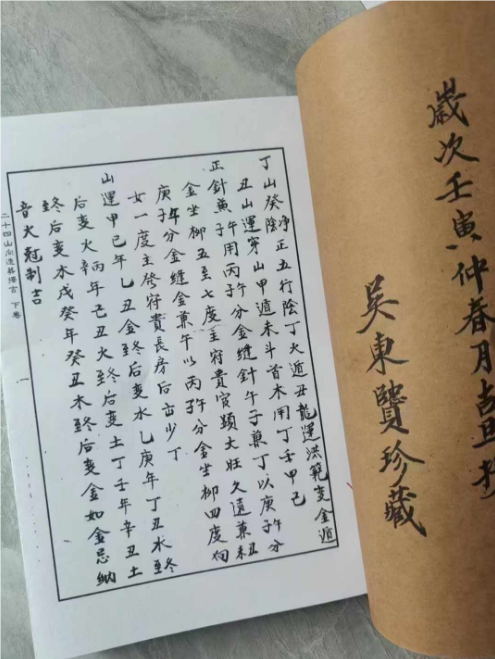 歲次壬寅仲春月吉旦抄
吴東賢珍藏
丁山癸陰淨正五行陰丁火遁丑龍運洪範变金遁
丑山運穿山甲遁未斗首木用丁壬甲己
正針兼子午用丙子午分金縫針午子兼丁以庚子午分
金坐柳五至七度主富貴宦顕大旺久遠兼未丑
庚子午分金縫金兼午以丙子午分金坐柳四度向
女一度主發富貴長房后出少丁
山運甲己年乙丑金至終后变水乙庚年丁丑水至終
后变火辛丙年己丑火至終后变土丁壬年辛丑土
至終后变木戊癸年癸丑木至終后变金如金忌納
音火冠制吉
二十四山向造葬博古 下卷 一